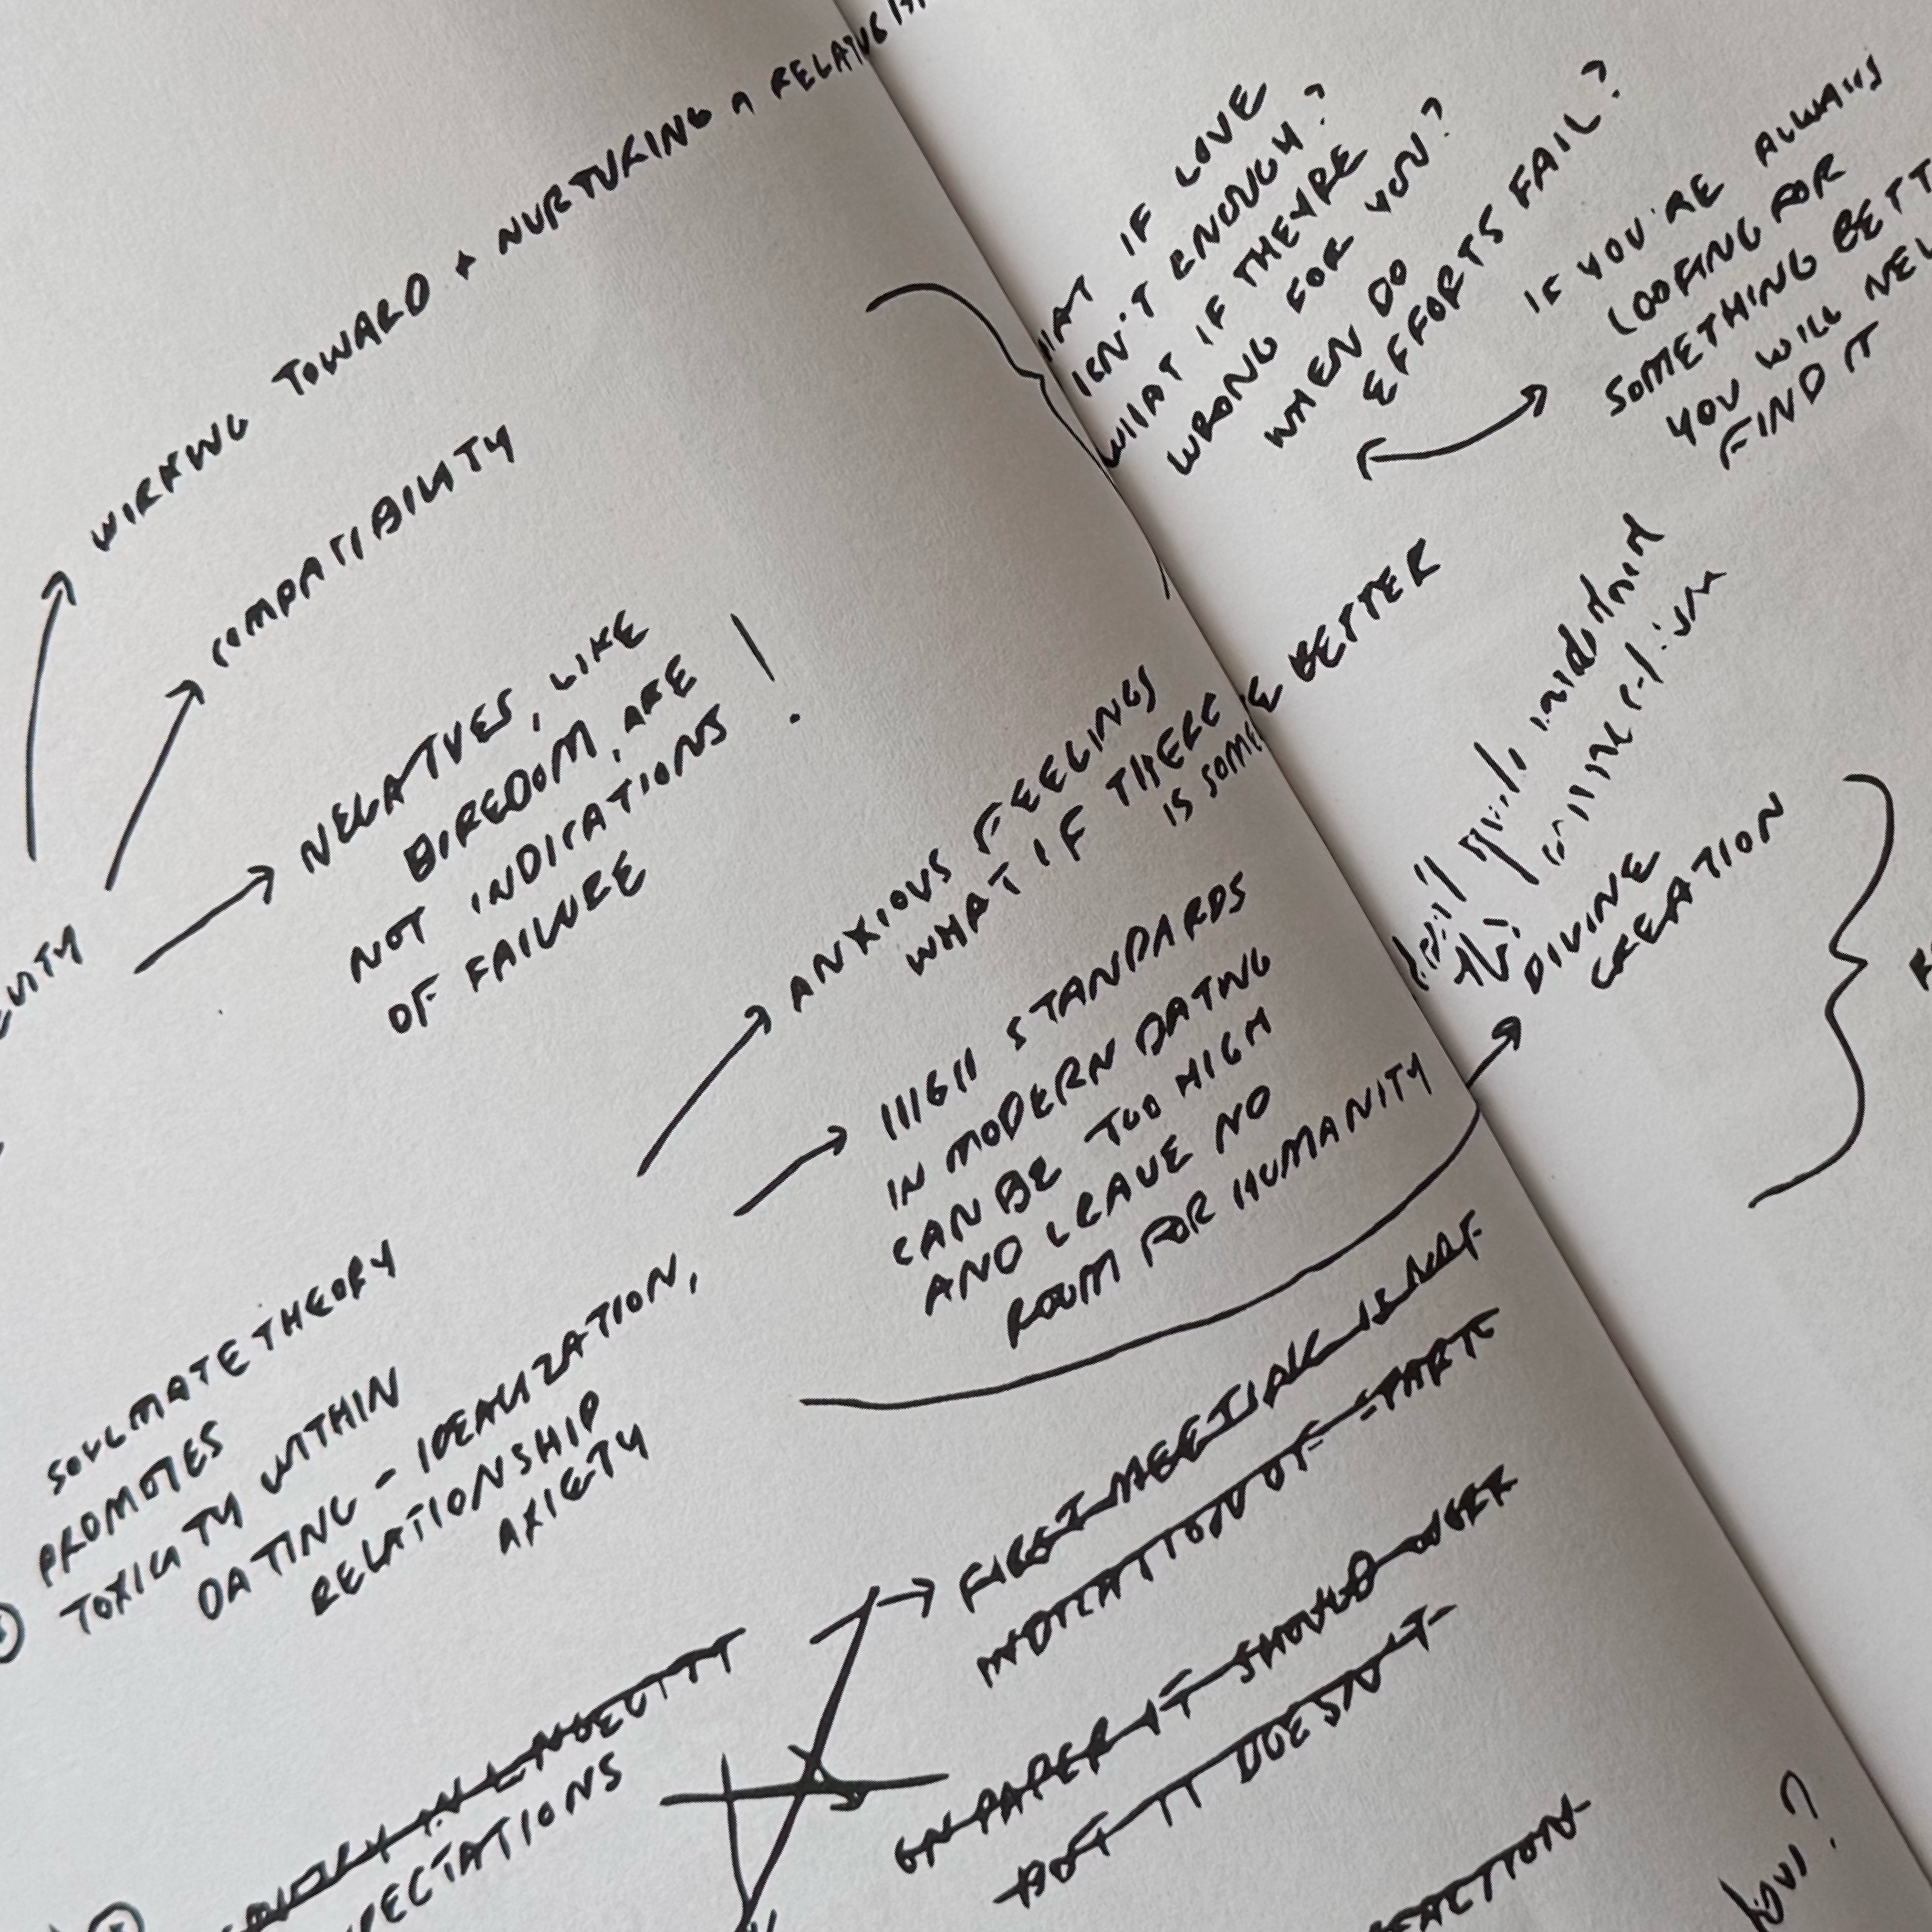 WORKING TOWARD + NURTURING A
COMPATIBILITY
NEGATIVES, LIKE
BOREDOM, ARE
NOT INDICATIONS
OF FAILURE !
ANXIOUS FEELINGS
WHAT IF THERE
IS SOME BETTER
HIGH STANDARDS
IN MODERN DATING
CAN BE TOO HIGH
AND LEAVE NO
ROOM FOR HUMANITY
SOULMATE THEORY
PROMOTES
TOXICITY WITHIN
DATING - IDEALIZATION,
RELATIONSHIP
AXIETY
FIRST MEETING IS NOT
INDICATION OF SPARK
ON PAPER IT SHOULD WORK
BUT IT DOESN'T
IF LOVE
ISN'T ENOUGH?
WHAT IF THEY'RE
WRONG FOR YOU?
WHEN DO
EFFORTS FAIL?
IF YOU'RE ALWAYS
LOOKING FOR
SOMETHING
YOU WILL
FIND IT
DIVINE
CREATION